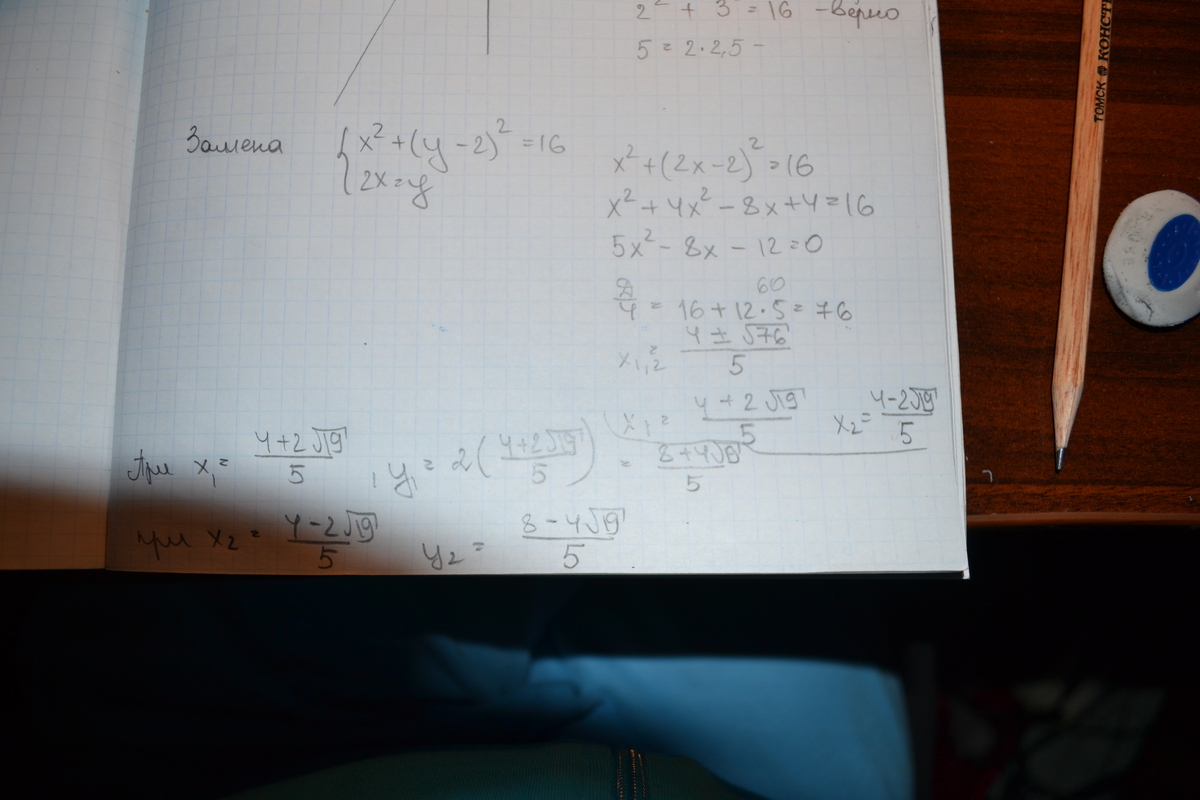 2² + 3 = 16 -верно
5 = 2·2,5 -
Замена
{ x² + (y - 2)² = 16
2x = y
x² + (2x - 2)² = 16
x² + 4x² - 8x + 4 = 16
5x² - 8x - 12 = 0
60
Д/4 = 16 + 12·5 = 76
x₁,₂ = (4 ± √76)/5
x₁ = (4 + 2√19)/5 x₂ = (4 - 2√19)/5
При x₁ = (4 + 2√19)/5 , y₁ = 2((4 + 2√19)/5) = (8 + 4√19)/5
при x₂ = (4 - 2√19)/5 y₂ = (8 - 4√19)/5
ТОМСК КОНСТ